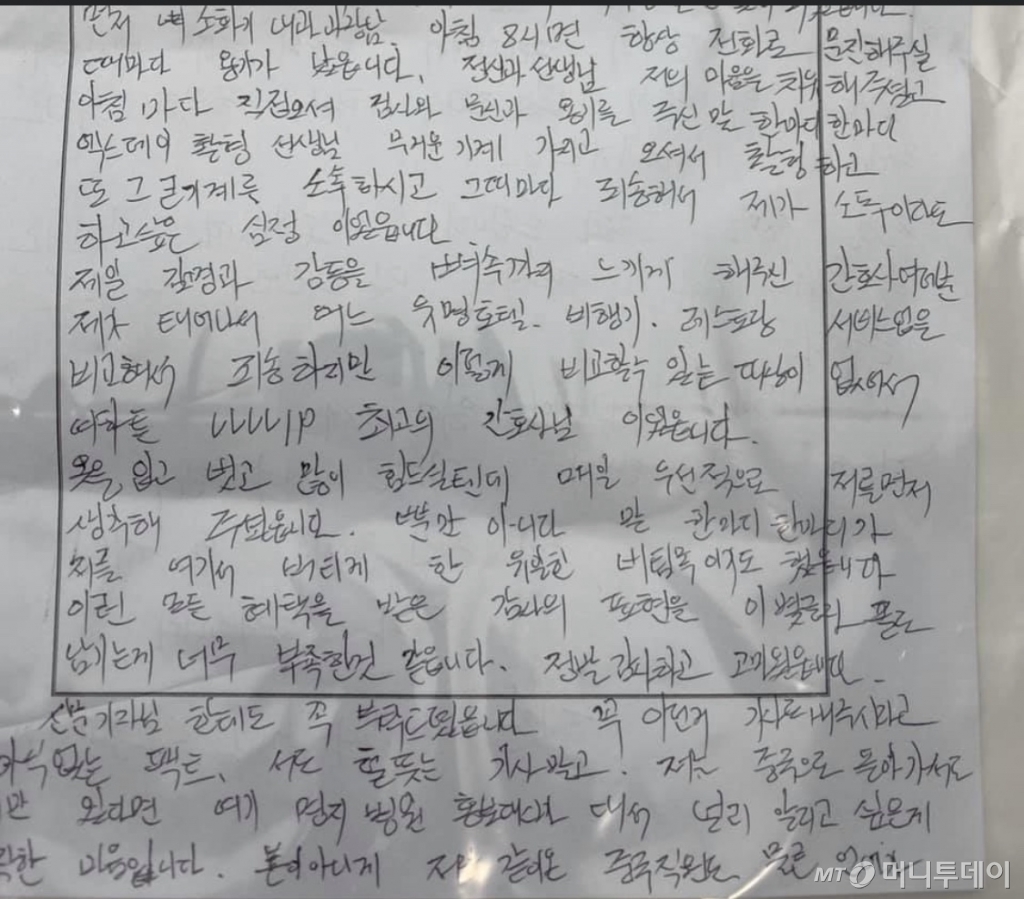 먼저 소화기 내과 과장님. 아침 8시면 항상 전화로 문진해주실
때마다 용기가 났습니다. 정신과선생님 저의 마음을 치유 해주셨고
아침 마다 직접오셔 접시와 문신과 용기를 주신 말 한마디한마디
엑스데이 촬팅 선생님 무거운기계 가지고 오셔서 촬팅하고
또 그 기계를 소독하시고 그때마다 죄송해서 제가 소독이라도
하고싶은 심정 이였읍니다
제일 존경과 감동을 뼈속까지 느끼게 해주신 간호사여러분
제가 태어나서 어느 유명호텔. 비행기. 레스토랑 서비스업을
비교해서 죄송하지만 이렇게 비교할수 있는 대상이 없어서
여하튼 VVVVIP 최고의 간호사님 이였읍니다.
옷을 입고 벗고 많이 힘드실텐데 매일 우선적으로 저를먼저
생각해 주셨읍니다. 뿐만 아니다 말 한마디 한마디가
저를 여기서 버티게 한 유일한 버팀목 이기도 했읍니다
이런 모든 혜택을 받은 감사의 표현을 이 볓글리 폴로
남기는게 너무 부족한것 같읍니다. 정말감사하고 고마웠읍니다.
기자님 한테도 꼭 부탁드렸읍니다 꼭 이런거 기사로내주시라고
없는 팩트, 서도 할뜻는 기사말고. 저는 중국으로 돌아가서도
만 원하면 여기 명지 병원 홍보대사로 대서 널리 알리고 싶은게
한 마음입니다. 본의아니게 저와 같이온 중국직원도 모로
MT 머니투데이